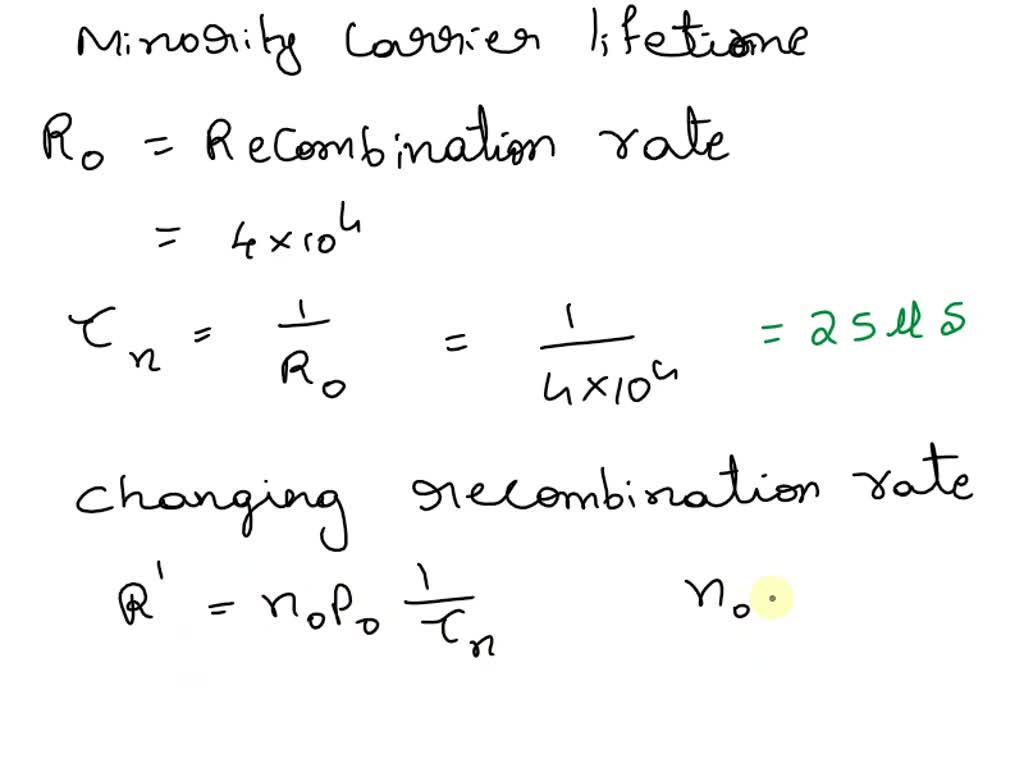 Minority Carrier lifetime
R₀ = Recombination rate
= 4×10⁴
τₙ = 1/R₀ = 1/(4×10⁴) = 25 μs
changing recombination rate
R' = n₀p₀ 1/τₙ n₀